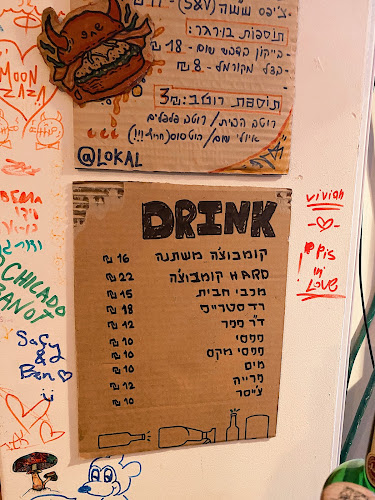 צ'יפס שלשה (S&V) - 17 ₪
תוספות בורגר:
בייקון בדבש שום - 18 ₪
בצל מקורמל - 8 ₪
תוספת רוטב: 3₪
רוטב הבית / רוטב פלפלים
איולי שום / רוטסוס (חריף!!!)
@LOKAL
MOON
ZAZA
CHICAGO
BANOT
Safy
&
Ben
vivian
pis
in
LOVE
DRINK
קומבוצ'ה משתנה 16 ₪
HARD קומבוצ'ה 22 ₪
מכבי חבית 15 ₪
רד סטרייפ 18 ₪
ד"ר פפר 12 ₪
פפסי 10 ₪
פפסי מקס 10 ₪
מים 10 ₪
פרייה 12 ₪
צ'ייסר 10 ₪